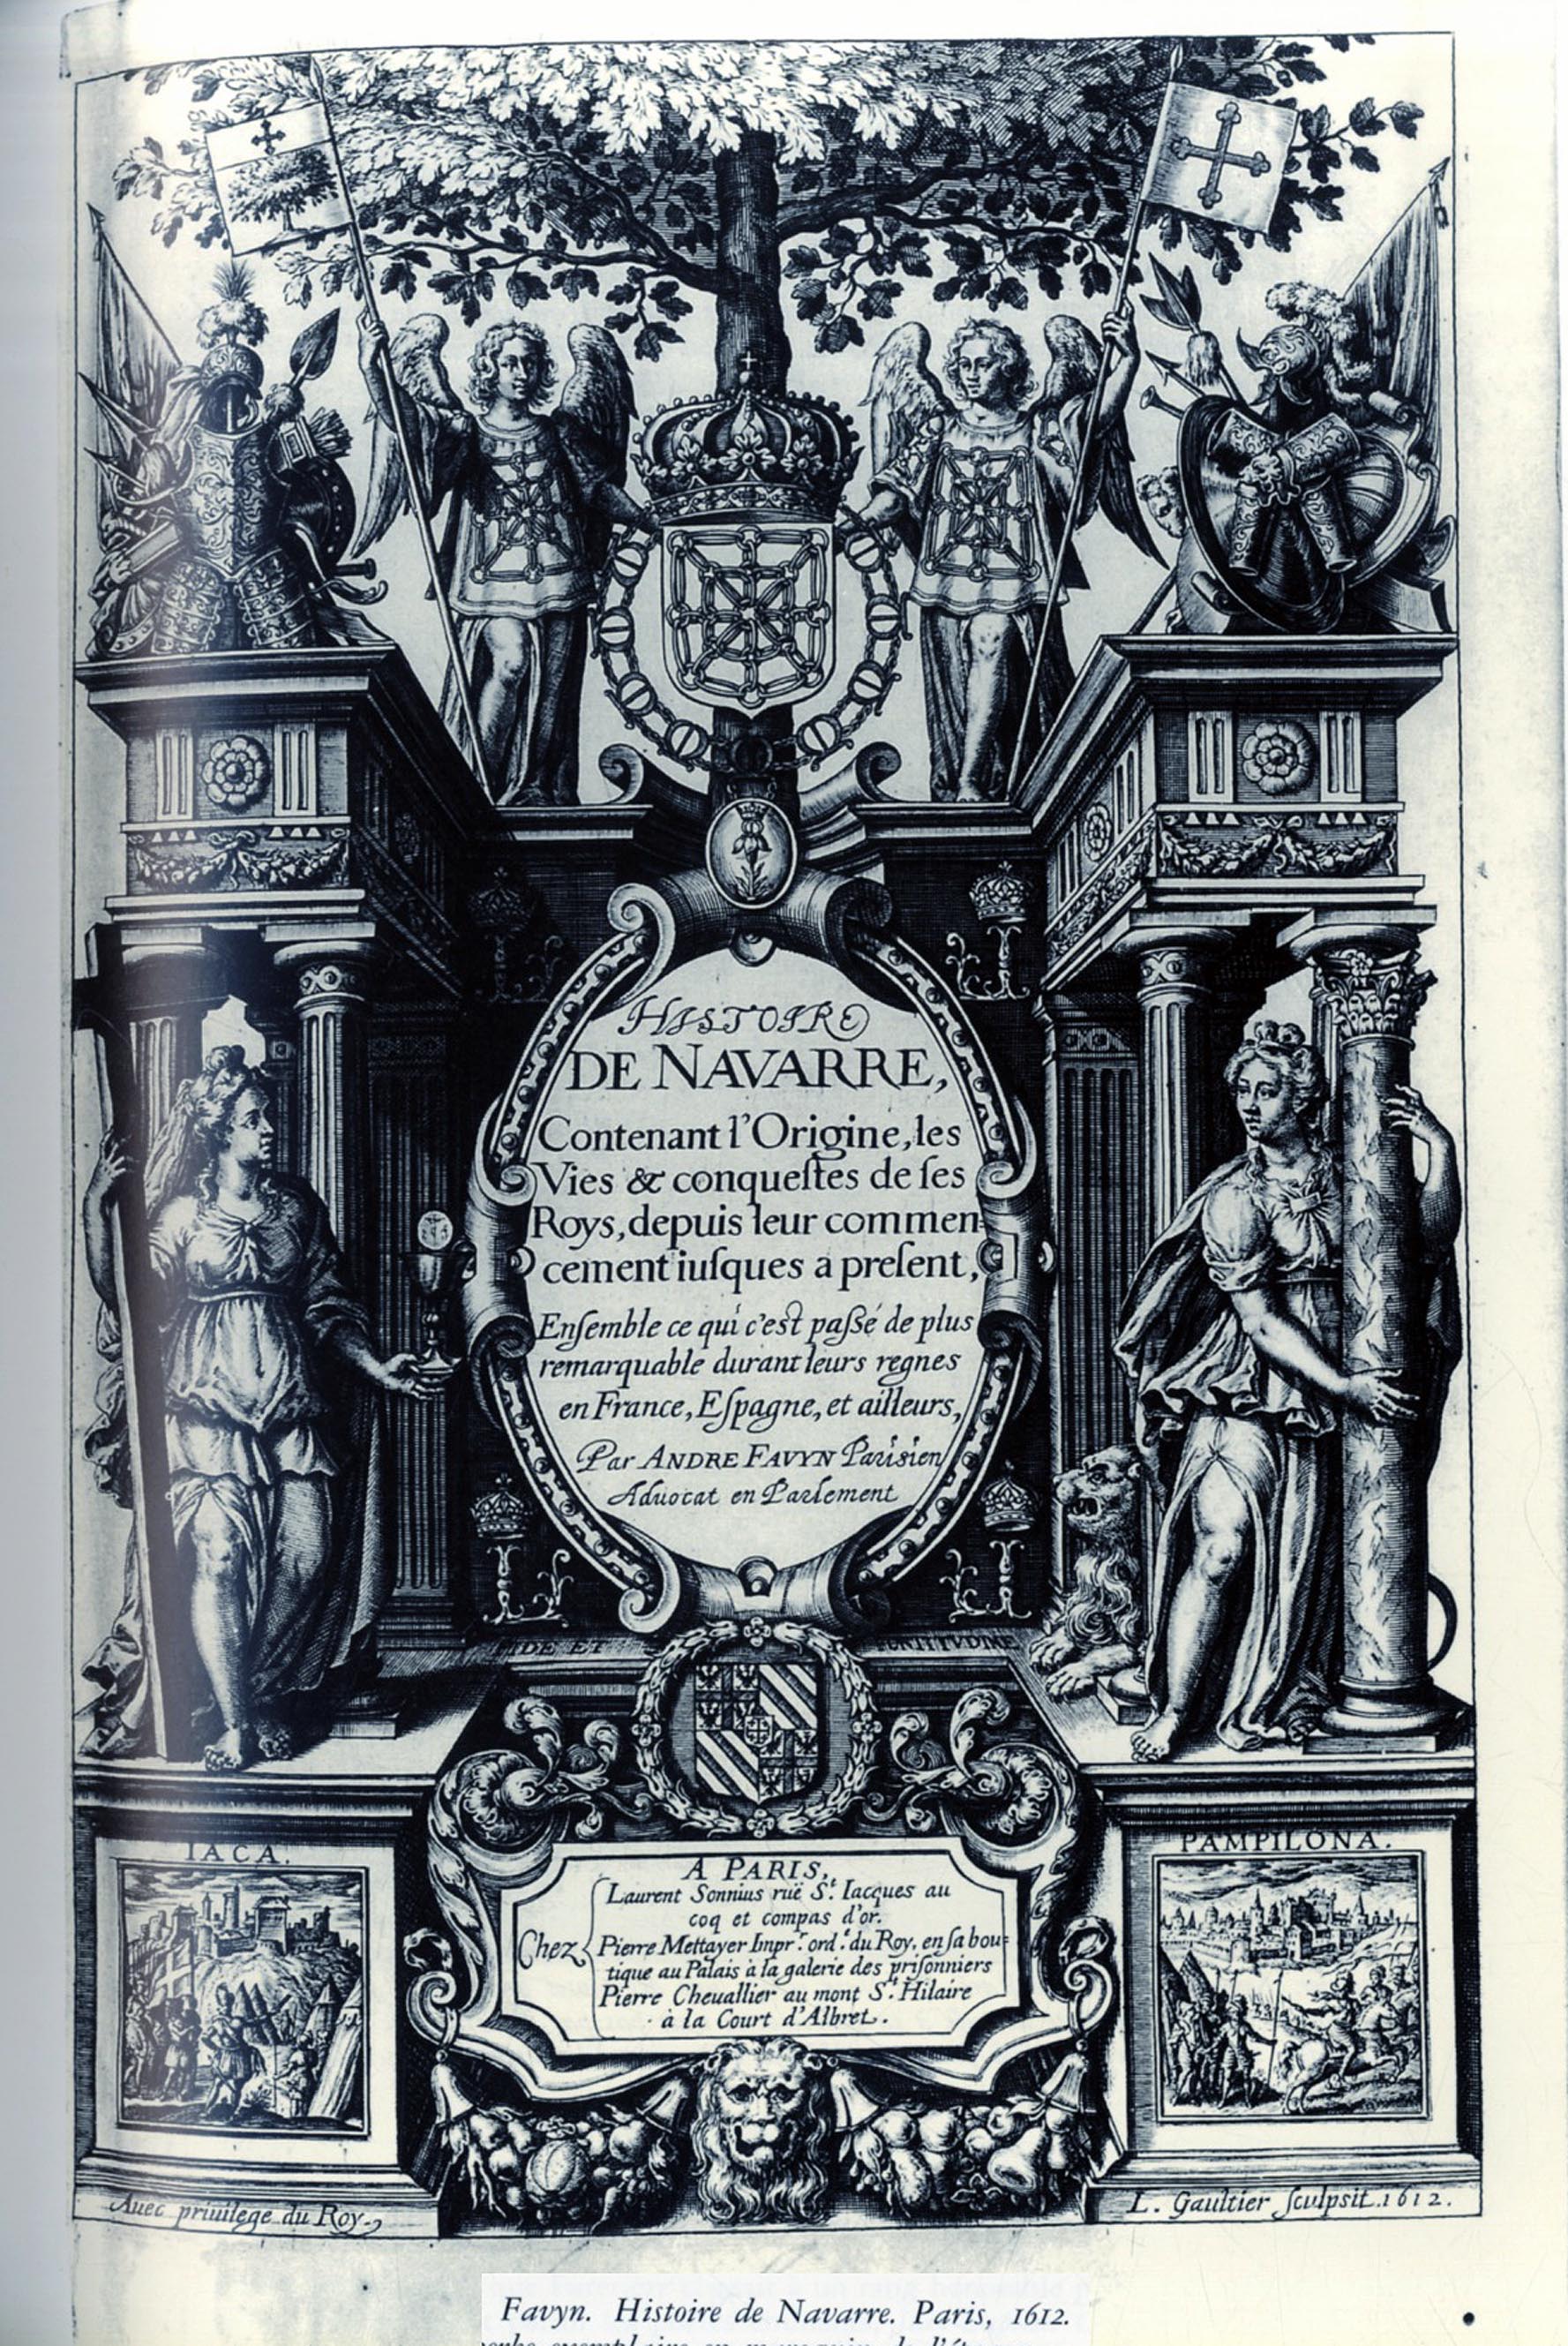 HISTOIRE
DE NAVARRE,
Contenant l'Origine, les
Vies & conqueſtes de ſes
Roys, depuis leur commen=
cement iuſques a preſent,
Enſemble ce qui c'est paßé de plus
remarquable durant leurs regnes
en France, Eſpagne, et ailleurs,
Par ANDRE FAVYN Parisien
Aduocat en Parlement
FIDE ET FORTITVDINE
IACA.
PAMPILONA.
A PARIS,
Laurent Sonnius rüe St. Iacques au
coq et compas d'or.
Chez Pierre Mettayer Impr. ord. du Roy, en ſa bou=
tique au Palais à la galerie des priſonniers
Pierre Cheuallier au mont St. Hilaire
à la Court d'Albret.
Auec priuilege du Roy.
L. Gaultier ſculpsit. 1612.
Favyn. Histoire de Navarre. Paris, 1612.